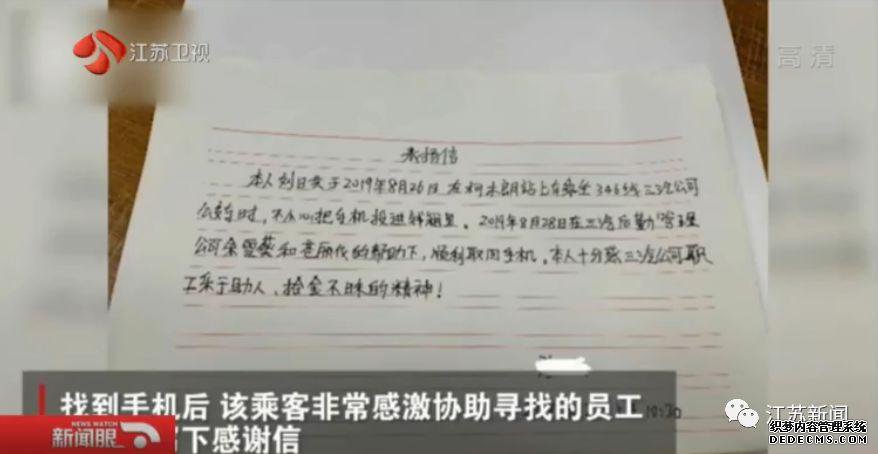 江苏卫视
高清
表扬信
本人刘日英于2019年8月26日在柯木朗站上车乘坐346线三汽公司
公交车时，不小心把手机投进钱箱里。2019年8月28日在三汽后勤管理
公司余雪葵和 丽代的帮助下，顺利取回手机。本人十分感三汽公司职
工乐于助人、拾金不昧的精神！
10:30
找到手机后 该乘客非常感激协助寻找的员工
下感谢信
NEWS WATCH
新闻眼
江苏新闻
织梦内容管理系统
DEDECMS.COM